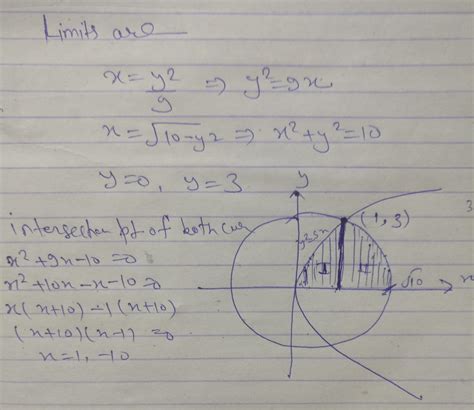 Limits are
x = y²/9 ⇒ y² = 9x
x = √10-y² ⇒ x² + y² = 10
y=0, y=3
intersection pt of both cur
x² + 9x - 10 = 0
x² + 10x - x - 10 = 0
x(x+10) - 1(x+10)
(x+10)(x-1) = 0
x = 1, -10
y
(1, 3)
I
II
√10
x
3